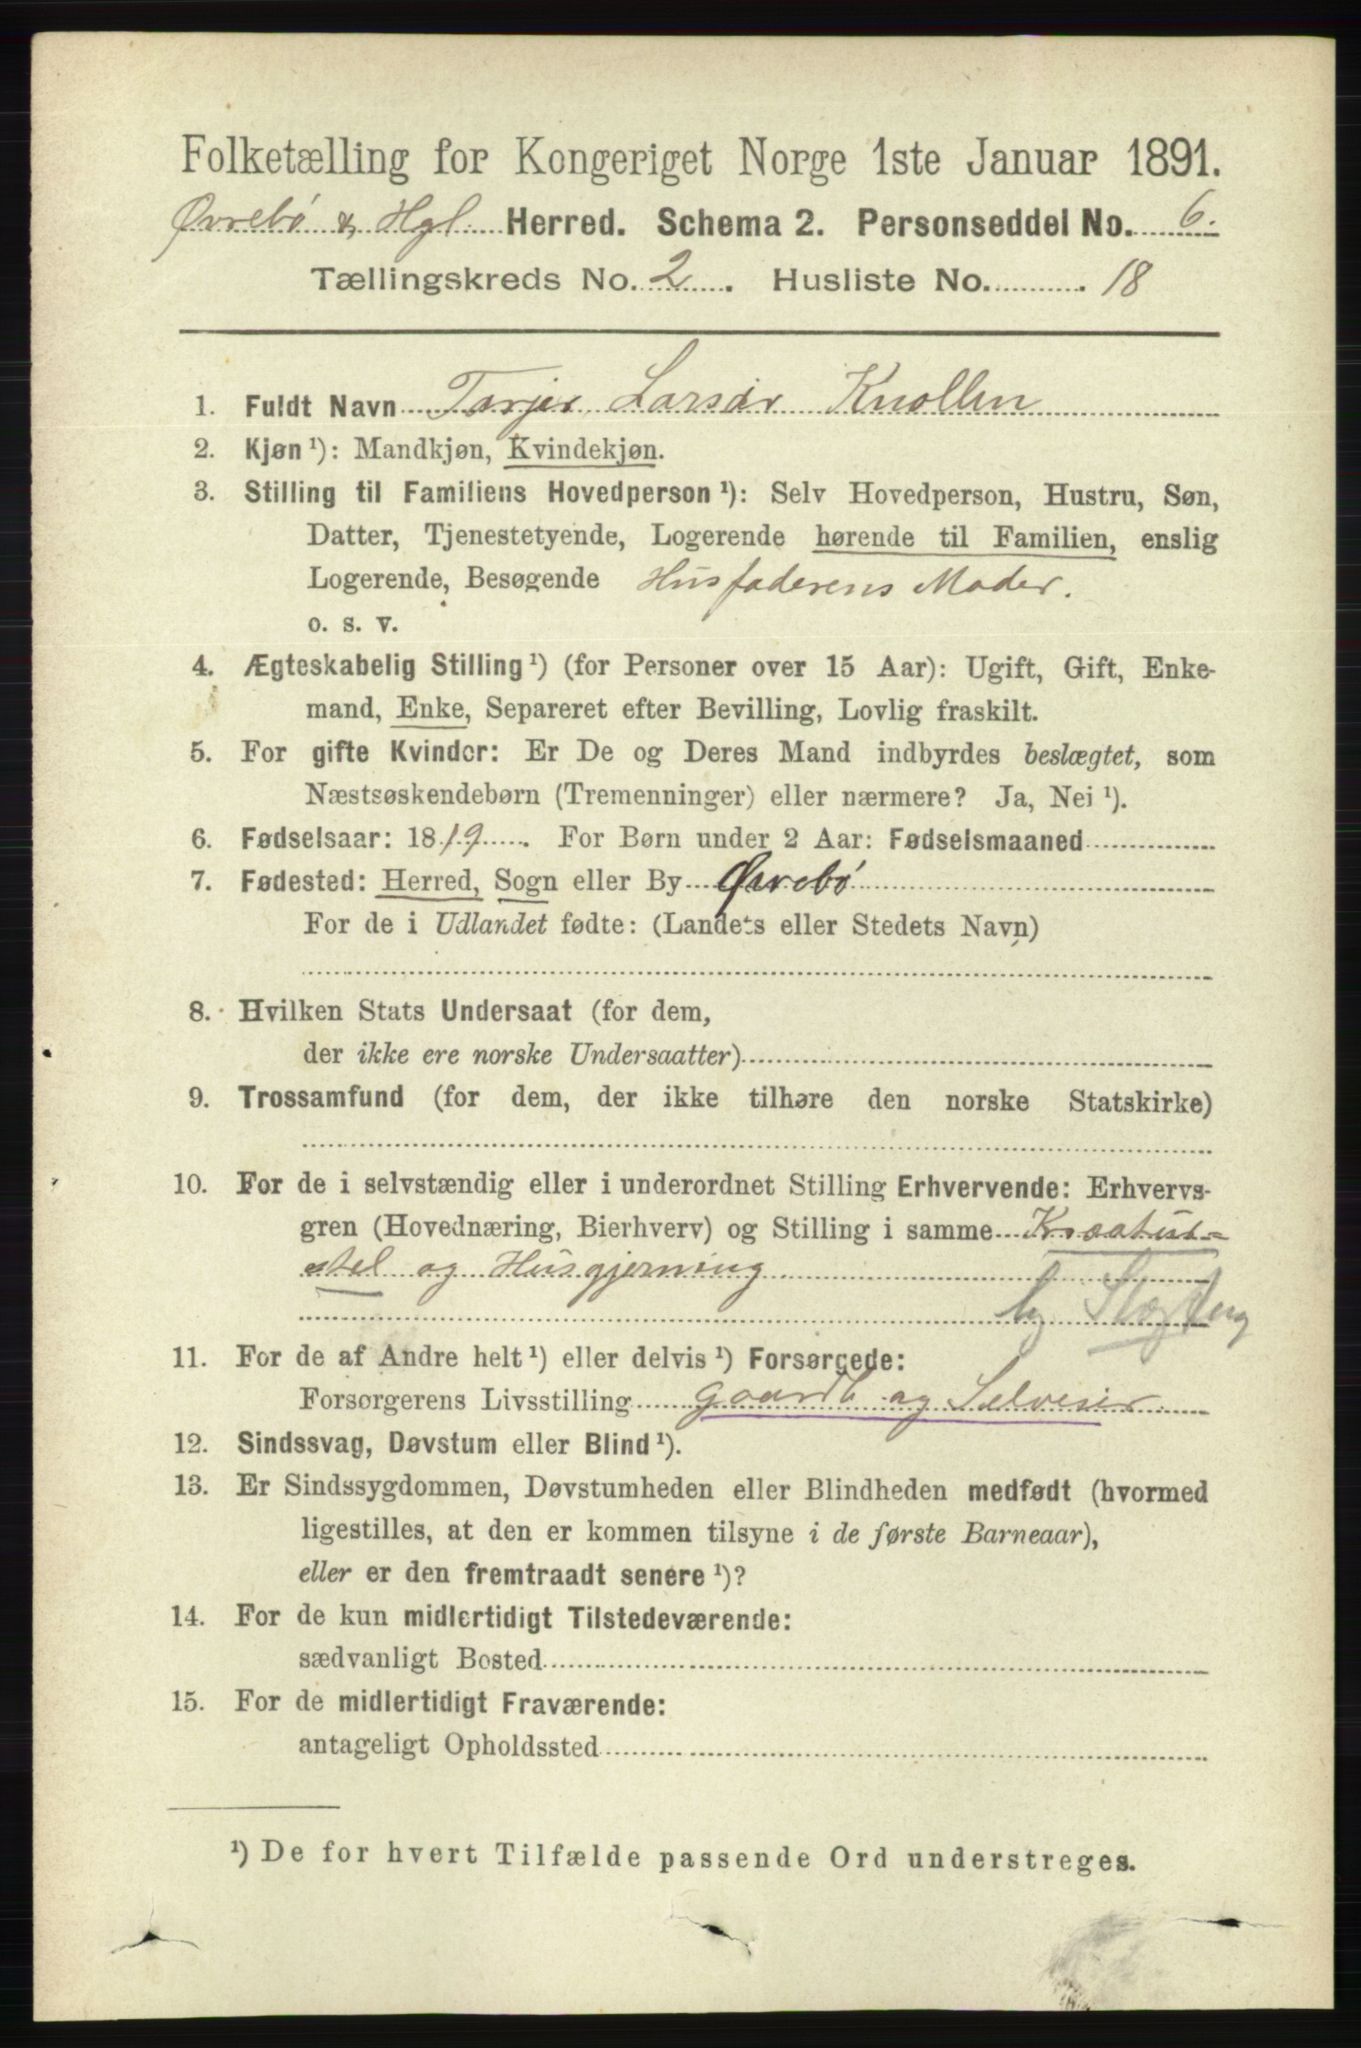 Folketælling for Kongeriget Norge 1ste Januar 1891.
Øvrebø & Hgl. Herred. Schema 2. Personseddel No. 6.
Tællingskreds No. 2. Husliste No. 18
1. Fuldt Navn Tarjer Larsdr Knollen
2. Kjøn ¹): Mandkjøn, Kvindekjøn.
3. Stilling til Familiens Hovedperson ¹): Selv Hovedperson, Hustru, Søn,
Datter, Tjenestetyende, Logerende hørende til Familien, enslig
Logerende, Besøgende Husfaderens Moder.
o. s. v.
4. Ægteskabelig Stilling ¹) (for Personer over 15 Aar): Ugift, Gift, Enke-
mand, Enke, Separeret efter Bevilling, Lovlig fraskilt.
5. For gifte Kvinder: Er De og Deres Mand indbyrdes beslægtet, som
Næstsøskendebørn (Tremenninger) eller nærmere? Ja, Nei ¹).
6. Fødselsaar: 1819. For Børn under 2 Aar: Fødselsmaaned
7. Fødested: Herred, Sogn eller By Øvrebø
For de i Udlandet fødte: (Landets eller Stedets Navn)
8. Hvilken Stats Undersaat (for dem,
der ikke ere norske Undersaatter)
9. Trossamfund (for dem, der ikke tilhøre den norske Statskirke)
10. For de i selvstændig eller i underordnet Stilling Erhvervende: Erhvervs-
gren (Hovednæring, Bierhverv) og Stilling i samme Kreatur-
stel og Husgjerning
11. For de af Andre helt ¹) eller delvis ¹) Forsørgede:
Forsørgerens Livsstilling Gaardb og Selveier
12. Sindssvag, Døvstum eller Blind ¹).
13. Er Sindssygdommen, Døvstumheden eller Blindheden medfødt (hvormed
ligestilles, at den er kommen tilsyne i de første Barneaar),
eller er den fremtraadt senere ¹)?
14. For de kun midlertidigt Tilstedeværende:
sædvanligt Bosted
15. For de midlertidigt Fraværende:
antageligt Opholdssted
¹) De for hvert Tilfælde passende Ord understreges.